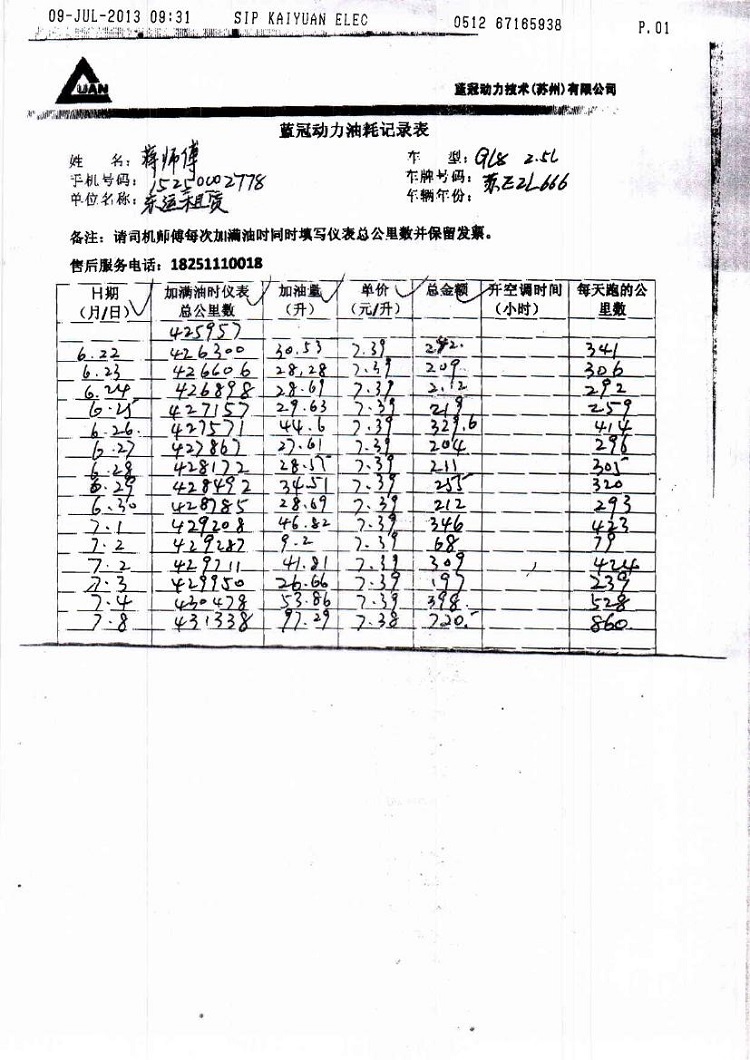 09-JUL-2013 09:31 SIP KAIYUAN ELEC 0512 67165938 P.01
GUAN 蓝冠动力技术(苏州)有限公司
蓝冠动力油耗记录表
姓 名: 蒋师傅 车 型: GL8 2.5L
手机号码: 15250002778 车牌号码: 苏EZL666
单位名称: 东运租赁 车辆年份:
备注: 请司机师傅每次加满油时同时填写仪表总公里数并保留发票。
售后服务电话: 18251110018
日期 加满油时仪表 加油量 单价 总金额 开空调时间 每天跑的公
(月/日) 总公里数 (升) (元/升) (小时) 里数
425957
6.22 426300 30.53 7.39 242. 341
6.23 426606 28.28 7.39 209 306
6.24 426898 28.69 7.39 212 292
6.25 427157 29.63 7.39 219 259
6.26. 427571 44.6 7.39 329.6 414
6.27 427867 27.61 7.39 204 296
6.28 428172 28.55 7.39 211 305
6.29 428492 34.51 7.39 255 320
6.30 428785 28.69 7.39 212 293
7.1 429208 46.82 7.39 346 423
7.2 429287 9.2 7.39 68 79
7.2 429711 41.81 7.39 309 424
7.3 429950 26.66 7.39 197 239
7.4 430478 53.86 7.39 398 528
7.8 431338 97.29 7.38 720. 860.